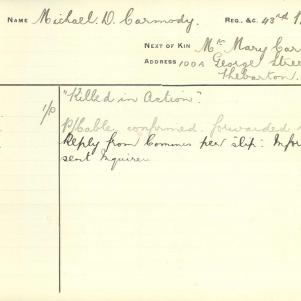 NAME Michael D. Carmody. REG. &C. 43rd
NEXT OF KIN Mrs Mary Car
ADDRESS 100A George Stree
Thebarton.
"Killed in Action".
1/0 P/Cable confirmed forwarded
Reply from Commns per slip: Infor
sent Inquirer